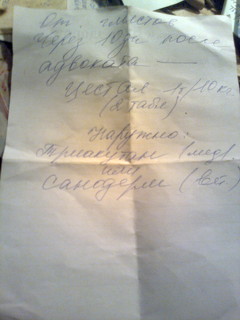 От глистов
через 10 дн после
адвоката —
Цестал 1т/10кг
(2 табл)
Наружно:
Триакутан (мед)
или
Санодерм (